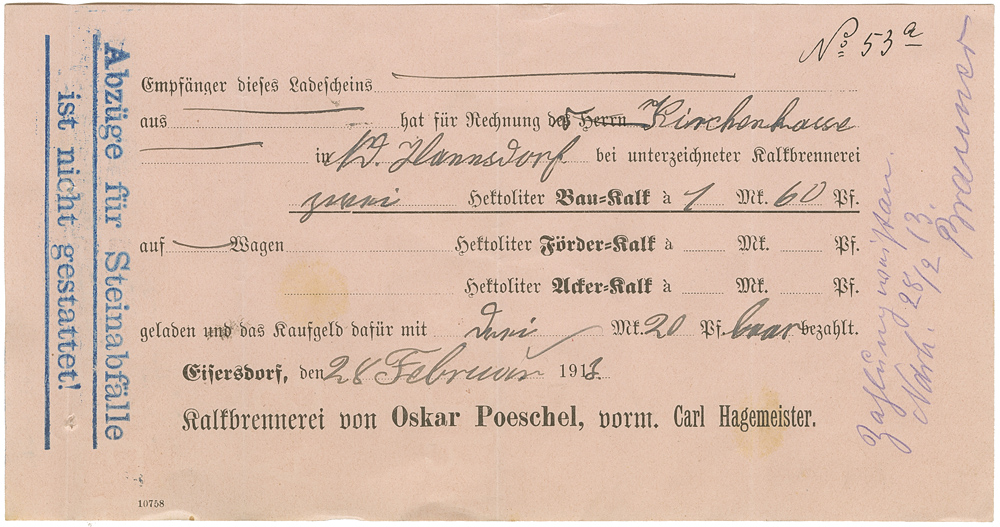 No 53a
Empfänger dieses Ladescheins
aus hat für Rechnung des Herrn Kirchenkasse
in N.D. Hannsdorf bei unterzeichneter Kalkbrennerei
zwei Hektoliter Bau-Kalk à 1 Mk. 60 Pf.
auf Wagen Hektoliter Förder-Kalk à Mk. Pf.
Hektoliter Acker-Kalk à Mk. Pf.
geladen und das Kaufgeld dafür mit drei Mk. 20 Pf. baar bezahlt.
Eisersdorf, den 28 Februar 1913.
Kalkbrennerei von Oskar Poeschel, vorm. Carl Hagemeister.
10758
Abzüge für Steinabfälle
ist nicht gestattet!
28/2 13.